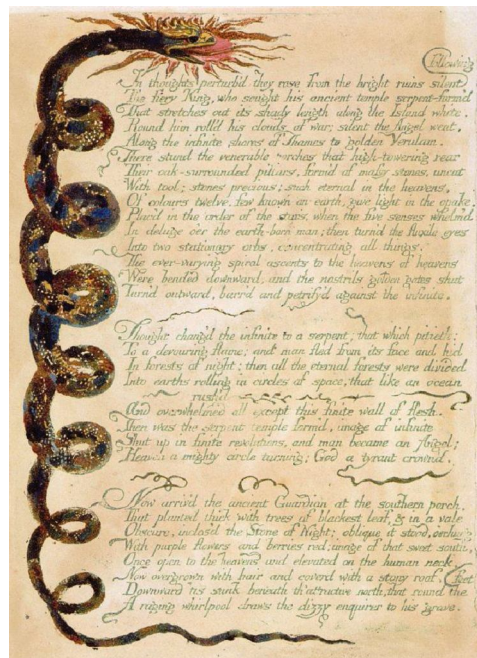 following
In thoughts perturb'd, they rose from the bright ruins silent
The fiery King, who sought his ancient temple serpent-form'd
That stretches out its shady length along the Island white.
Round him roll'd his clouds of war; silent the Angel went,
Along the infinite shores of Thames to golden Verulam.
There stand the venerable porches that high-towering rear
Their oak-surrounded pillars, form'd of massy stones, uncut
With tool; stones precious; such eternal in the heavens,
Of colours twelve, few known on earth, give light in the opake,
Plac'd in the order of the stars, when the five senses whelm'd
In deluge o'er the earth-born man; then turn'd the fluxile eyes
Into two stationary orbs, concentrating all things.
The ever-varying spiral ascents to the heavens of heavens
Were bended downward; and the nostrils golden gates shut
Turn'd outward, barr'd and petrify'd against the infinite.
Thought chang'd the infinite to a serpent; that which pitieth:
To a devouring flame; and man fled from its face and hid
In forests of night; then all the eternal forests were divided
Into earths rolling in circles of space, that like an ocean
rush'd
And overwhelmed all except this finite wall of flesh.
Then was the serpent temple form'd, image of infinite
Shut up in finite revolutions, and man became an Angel;
Heaven a mighty circle turning; God a tyrant crown'd.
Now arriv'd the ancient Guardian at the southern porch,
That planted thick with trees of blackest leaf, & in a vale
Obscure, inclos'd the Stone of Night; oblique it stood, o'erhung
With purple flowers and berries red; image of that sweet south,
Once open to the heavens and elevated on the human neck,
Now overgrown with hair and coverd with a stony roof,
Downward 'tis sunk beneath th' attractive north, that round the feet
A raging whirlpool draws the dizzy enquirer to his grave.